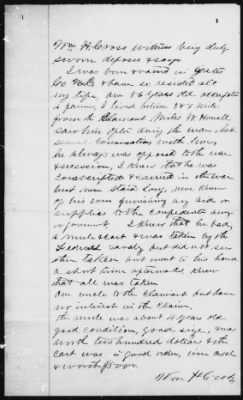 Wm H. Cross witness being duly
sworn deposes & says
I was born & raised in Gates
Co N.C. & have so resided all
my life. am 56 years old, occupation
a farmer, I lived before & a mile
from the Claimant Miles W. Howell
saw him often during the war, had
several conversations with him,
he always was opposed to the war
& secession, I knew that he was
conscripted & carried in the war
but not staid long, never knew
of his ever furnishing any aid or
supplies to the confederate army
or government I knew that he had
a mule & cart & was taken by the
Federals but did not see
them taken but went to his house
a short time afterwards & knew
that all was taken
am uncle to the claimant but have
no interest in the claim,
the mule was about 4 years old
good condition, good size, was
worth two hundred dollars & the
cart was in good order,
& worth
Wm H Cross